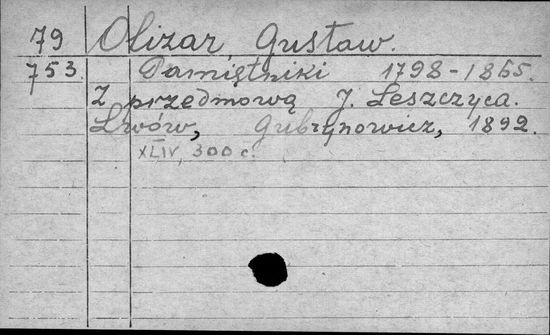 79 Olizar, Gustaw.
753. Pamiętniki 1798-1865.
Z przedmową J. Leszczyca.
Lwów, Gubrynowicz, 1892.
XLIV, 300 c.